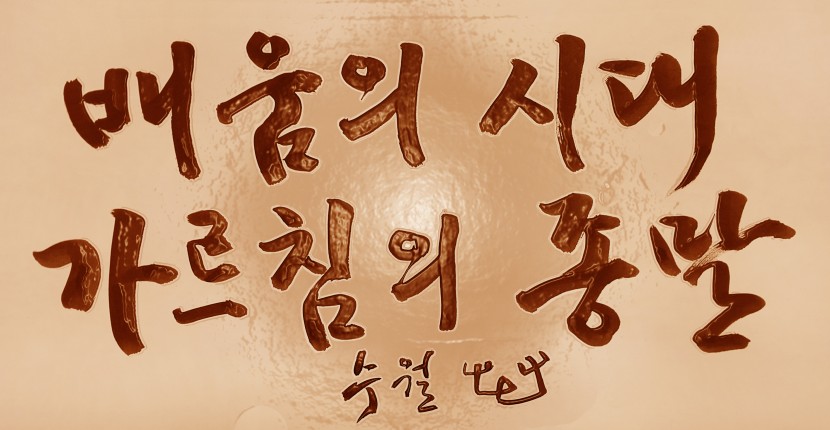 배움의 시대
가르침의 종말
수월